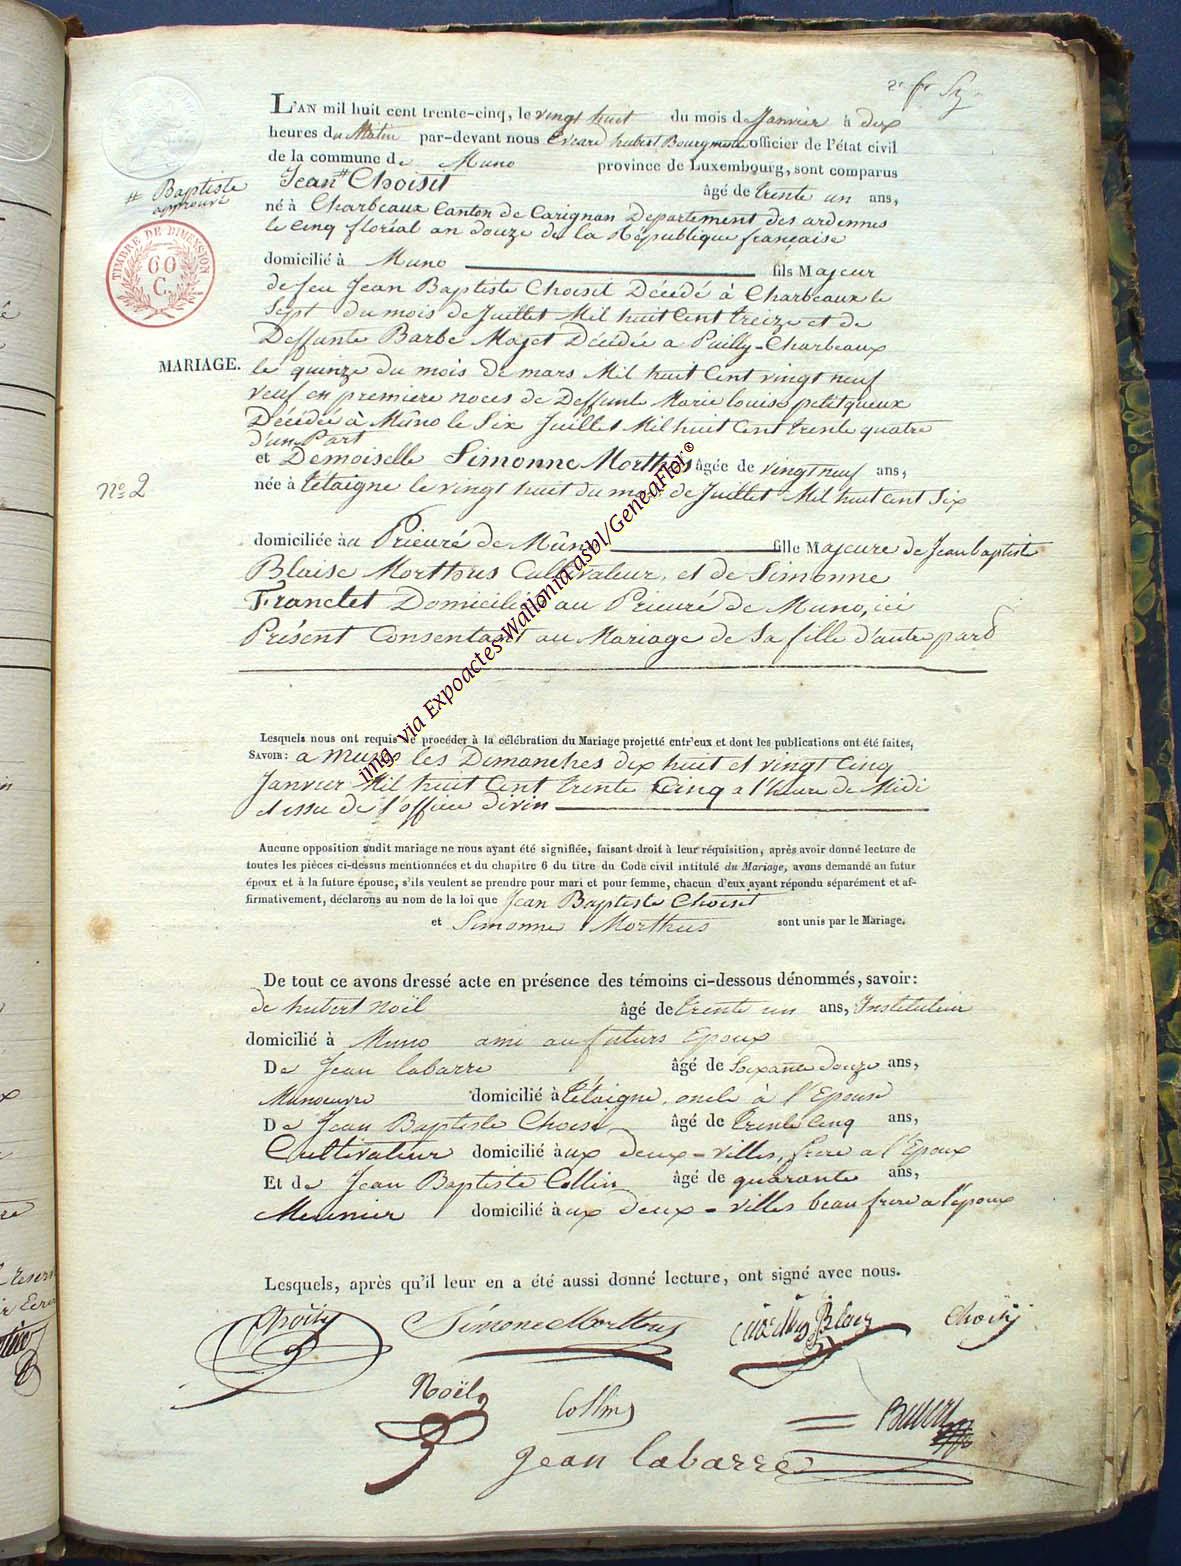 L'AN mil huit cent trente-cinq, le vingt huit du mois de Janvier à dix
heures du Matin par-devant nous hubert officier de l'état civil
de la commune de Muno province de Luxembourg, sont comparus
# Baptiste
approuvé
Jean # Choisit âgé de trente un ans,
né à Charbeaux Canton de Carignan Departement des ardennes
le Cinq florial an douze de la République française
TIMBRE DE DIMENSION
60
C.
domicilié à Muno fils Majeur
de feu Jean Baptiste Choisit Décédé à Charbeaux le
Sept du mois de Juillet Mil huit Cent treize et de
Deffunte Barbe Majet Décédée a Puilly-Charbeaux
MARIAGE.
le quinze du mois de mars Mil huit Cent vingt neuf
veuf en premiere noces de Deffunte Marie louise petitqueux
Décédée à Mûno le Six Juillet Mil huit Cent trente quatre
d'une Part
et Demoiselle Simonne Morthus âgée de vingt neuf ans,
No 2
née à tétaigne le vingt huit du mois de Juillet Mil huit Cent Six
domiciliée au Prieuré de Mûno fille Majeure de Jean baptiste
Blaise Morthus Cultivateur, et de Simonne
Franclet Domiciliés au Prieure de Muno, ici
Présent Consentant au Mariage de Sa fille d'autre part
Lesquels nous ont requis de procéder à la célébration du Mariage projetté entr'eux et dont les publications ont été faites,
SAVOIR: a Muno les Dimanches dix huit et vingt Cinq
Janvier Mil huit Cent trente Cinq a l'heure de Midi
et issue de l'office divin
Aucune opposition audit mariage ne nous ayant été signifiée, faisant droit à leur réquisition, après avoir donné lecture de
toutes les pièces ci-dessus mentionnées et du chapitre 6 du titre du Code civil intitulé du Mariage, avons demandé au futur
époux et à la future épouse, s'ils veulent se prendre pour mari et pour femme, chacun d'eux ayant répondu séparément et af-
firmativement, déclarons au nom de la loi que Jean Baptiste Choisit
et Simonne Morthus sont unis par le Mariage.
De tout ce avons dressé acte en présence des témoins ci-dessous dénommés, savoir:
de hubert Noël âgé de trente un ans, Instituteur
domicilié à Muno ami au futurs Epoux
De Jean labarre âgé de Soixante douze ans,
Manoeuvre domicilié à tétaigne, oncle à l'Epouse
De Jean Baptiste Choisi âgé de trente Cinq ans,
Cultivateur domicilié aux deux-villes, frere a l'Epoux
Et de Jean Baptiste Collin âgé de quarante ans,
Meunier domicilié aux deux-villes beau frere a l'époux
Lesquels, après qu'il leur en a été aussi donné lecture, ont signé avec nous.
Choisy Simone Morthus Choisy
Noël Collin
Jean labarre
img via Expoactes-Wallonia asbl/GeneaFlor®